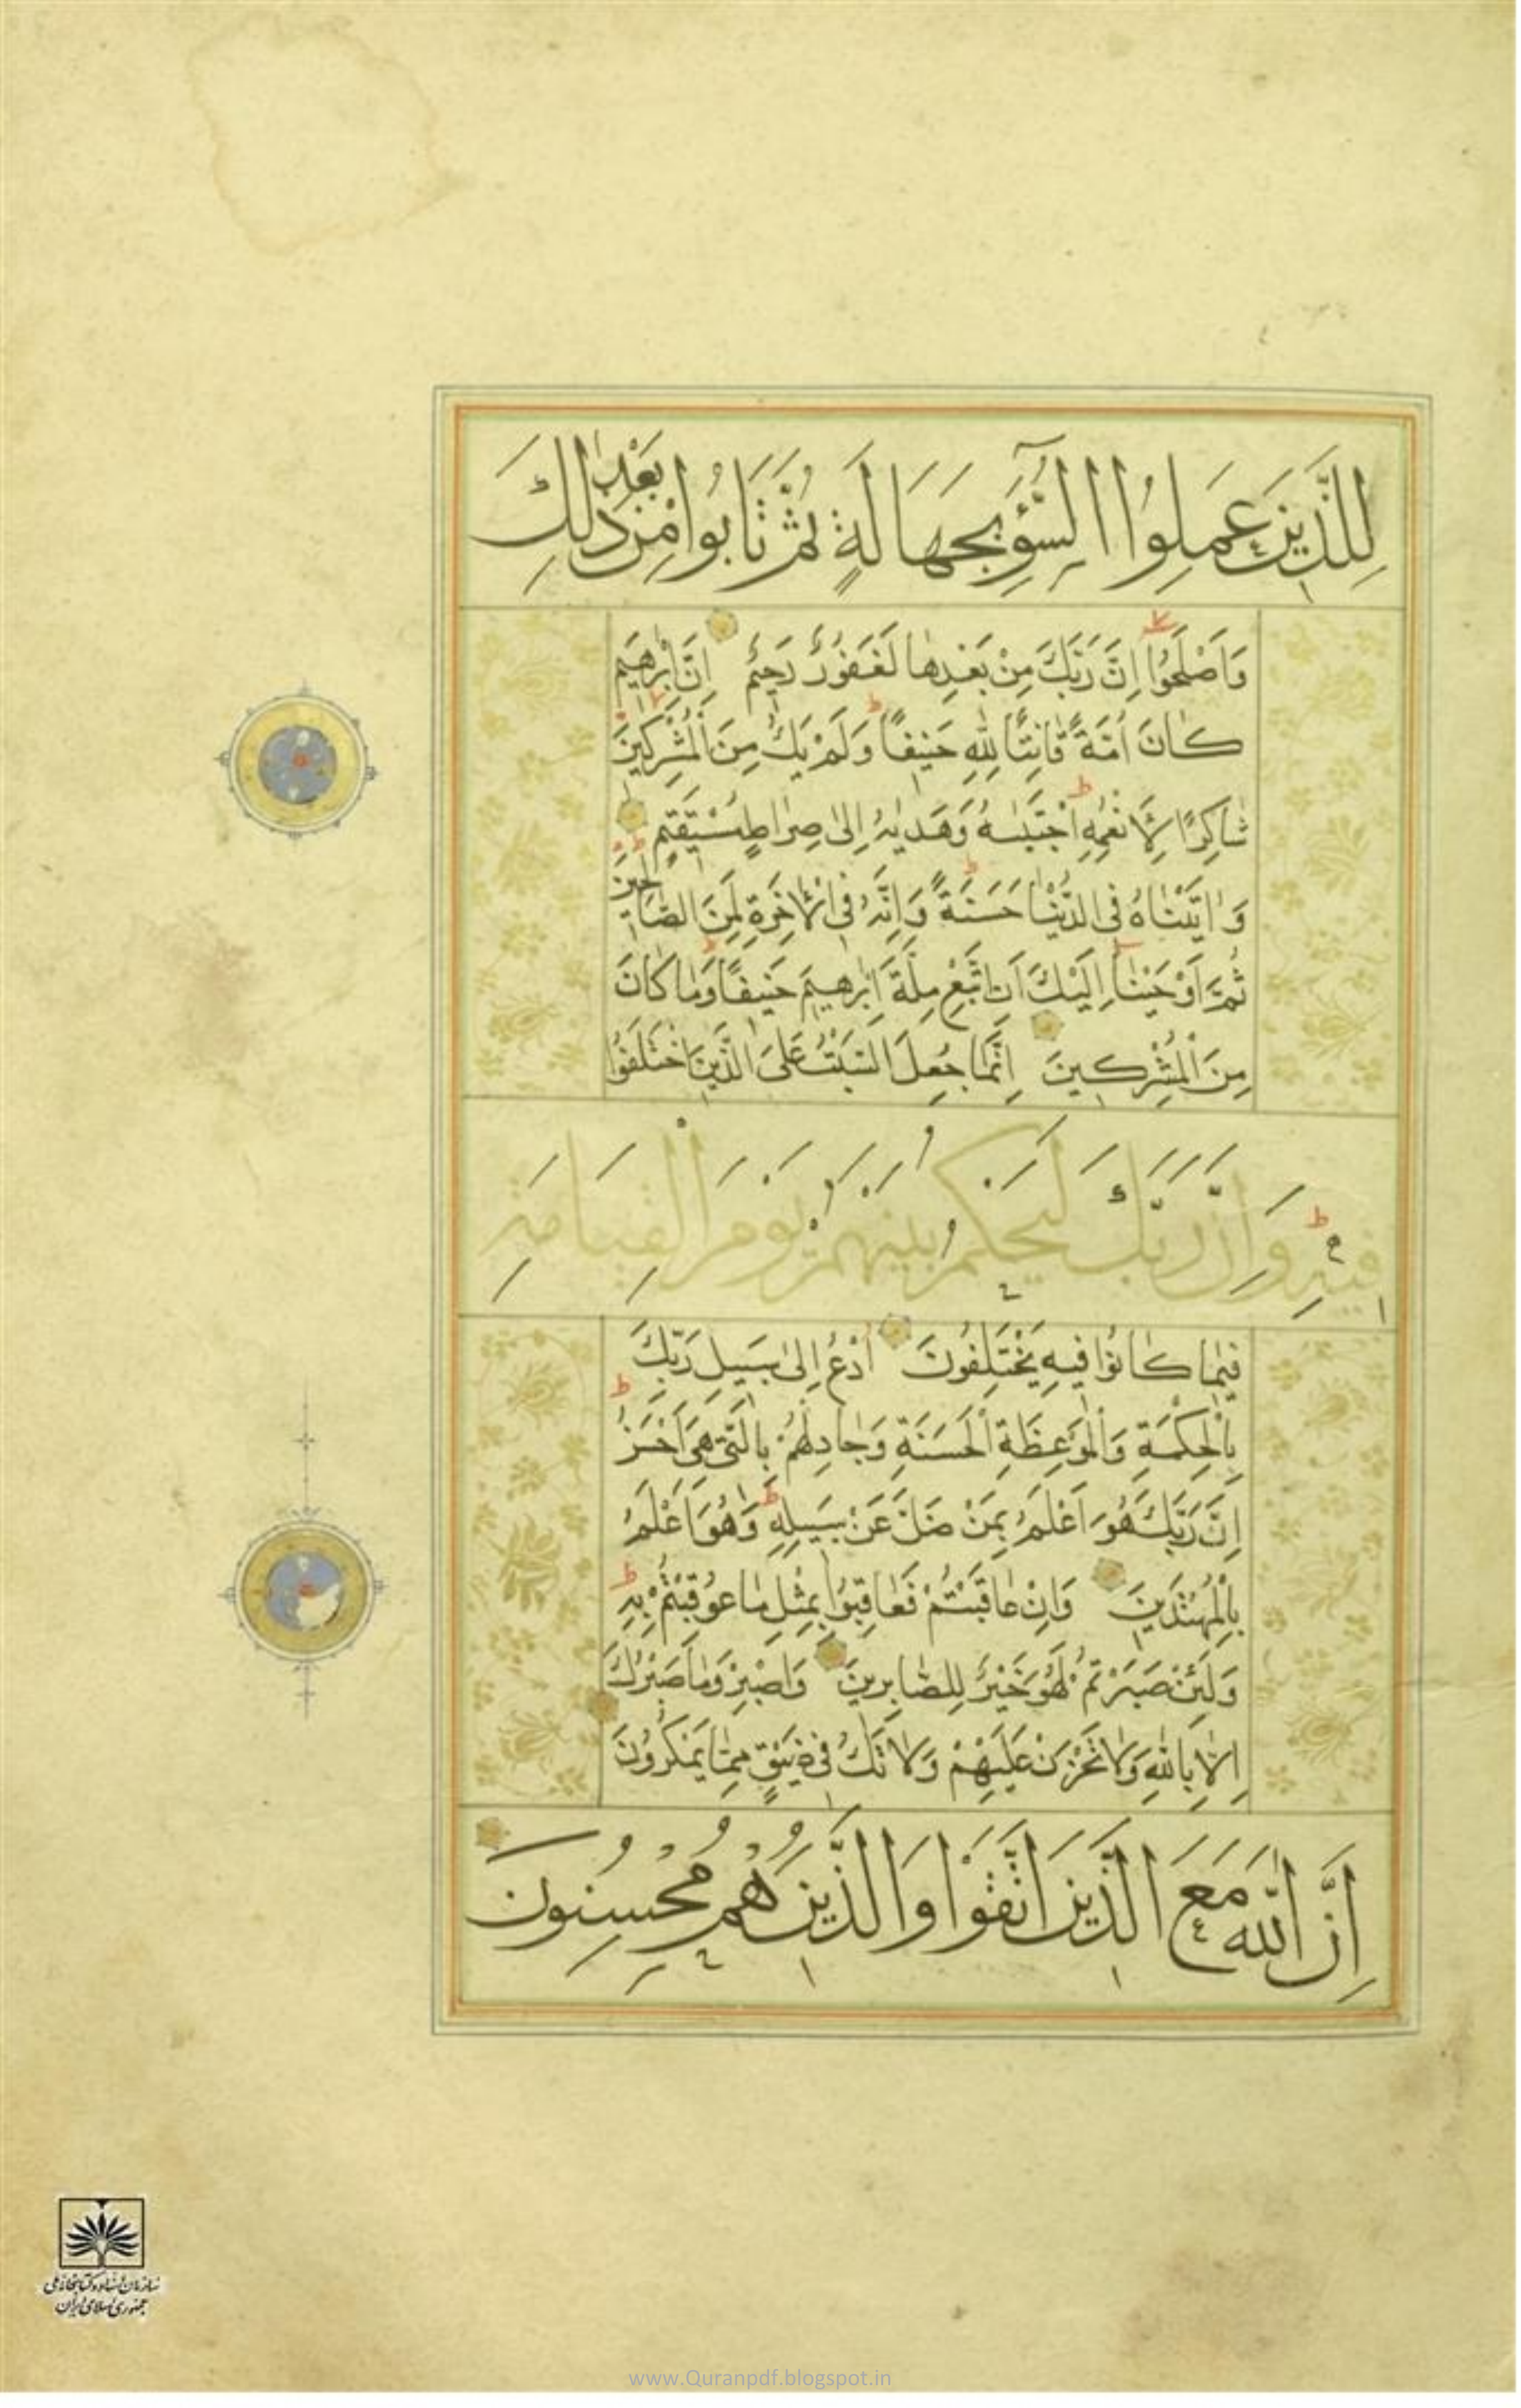 لِلَّذِينَ عَمِلُوا السُّوٓءَ بِجَهَالَةٍ ثُمَّ تَابُوا مِنْ بَعْدِ ذٰلِكَ
وَاَصْلَحُوٓا اِنَّ رَبَّكَ مِنْ بَعْدِهَا لَغَفُورٌ رَحِيمٌ اِنَّ اِبْرٰهِيمَ
كَانَ اُمَّةً قَانِتًا لِلّٰهِ حَنِيفًا وَلَمْ يَكُ مِنَ الْمُشْرِكِينَ
شَاكِرًا لِاَنْعُمِهِ اجْتَبٰيهُ وَهَدٰيهُ اِلٰى صِرَاطٍ مُسْتَقِيمٍ
وَاٰتَيْنَاهُ فِى الدُّنْيَا حَسَنَةً وَاِنَّهُ فِى الْاٰخِرَةِ لَمِنَ الصَّالِحِينَ
ثُمَّ اَوْحَيْنَا اِلَيْكَ اَنِ اتَّبِعْ مِلَّةَ اِبْرٰهِيمَ حَنِيفًا وَمَا كَانَ
مِنَ الْمُشْرِكِينَ اِنَّمَا جُعِلَ السَّبْتُ عَلَى الَّذِينَ اخْتَلَفُوا
فِيهِ وَاِنَّ رَبَّكَ لَيَحْكُمُ بَيْنَهُمْ يَوْمَ الْقِيَامَةِ
فِيمَا كَانُوا فِيهِ يَخْتَلِفُونَ اُدْعُ اِلٰى سَبِيلِ رَبِّكَ
بِالْحِكْمَةِ وَالْمَوْعِظَةِ الْحَسَنَةِ وَجَادِلْهُمْ بِالَّتِى هِىَ اَحْسَنُ
اِنَّ رَبَّكَ هُوَ اَعْلَمُ بِمَنْ ضَلَّ عَنْ سَبِيلِهِ وَهُوَ اَعْلَمُ
بِالْمُهْتَدِينَ وَاِنْ عَاقَبْتُمْ فَعَاقِبُوا بِمِثْلِ مَا عُوقِبْتُمْ بِهِ
وَلَئِنْ صَبَرْتُمْ لَهُوَ خَيْرٌ لِلصَّابِرِينَ وَاصْبِرْ وَمَا صَبْرُكَ
اِلَّا بِاللّٰهِ وَلَا تَحْزَنْ عَلَيْهِمْ وَلَا تَكُ فِى ضَيْقٍ مِمَّا يَمْكُرُونَ
اِنَّ اللّٰهَ مَعَ الَّذِينَ اتَّقَوْا وَالَّذِينَ هُمْ مُحْسِنُونَ
سازمان اسناد و کتابخانه ملی
جمهوری اسلامی ایران
www.Quranpdf.blogspot.in